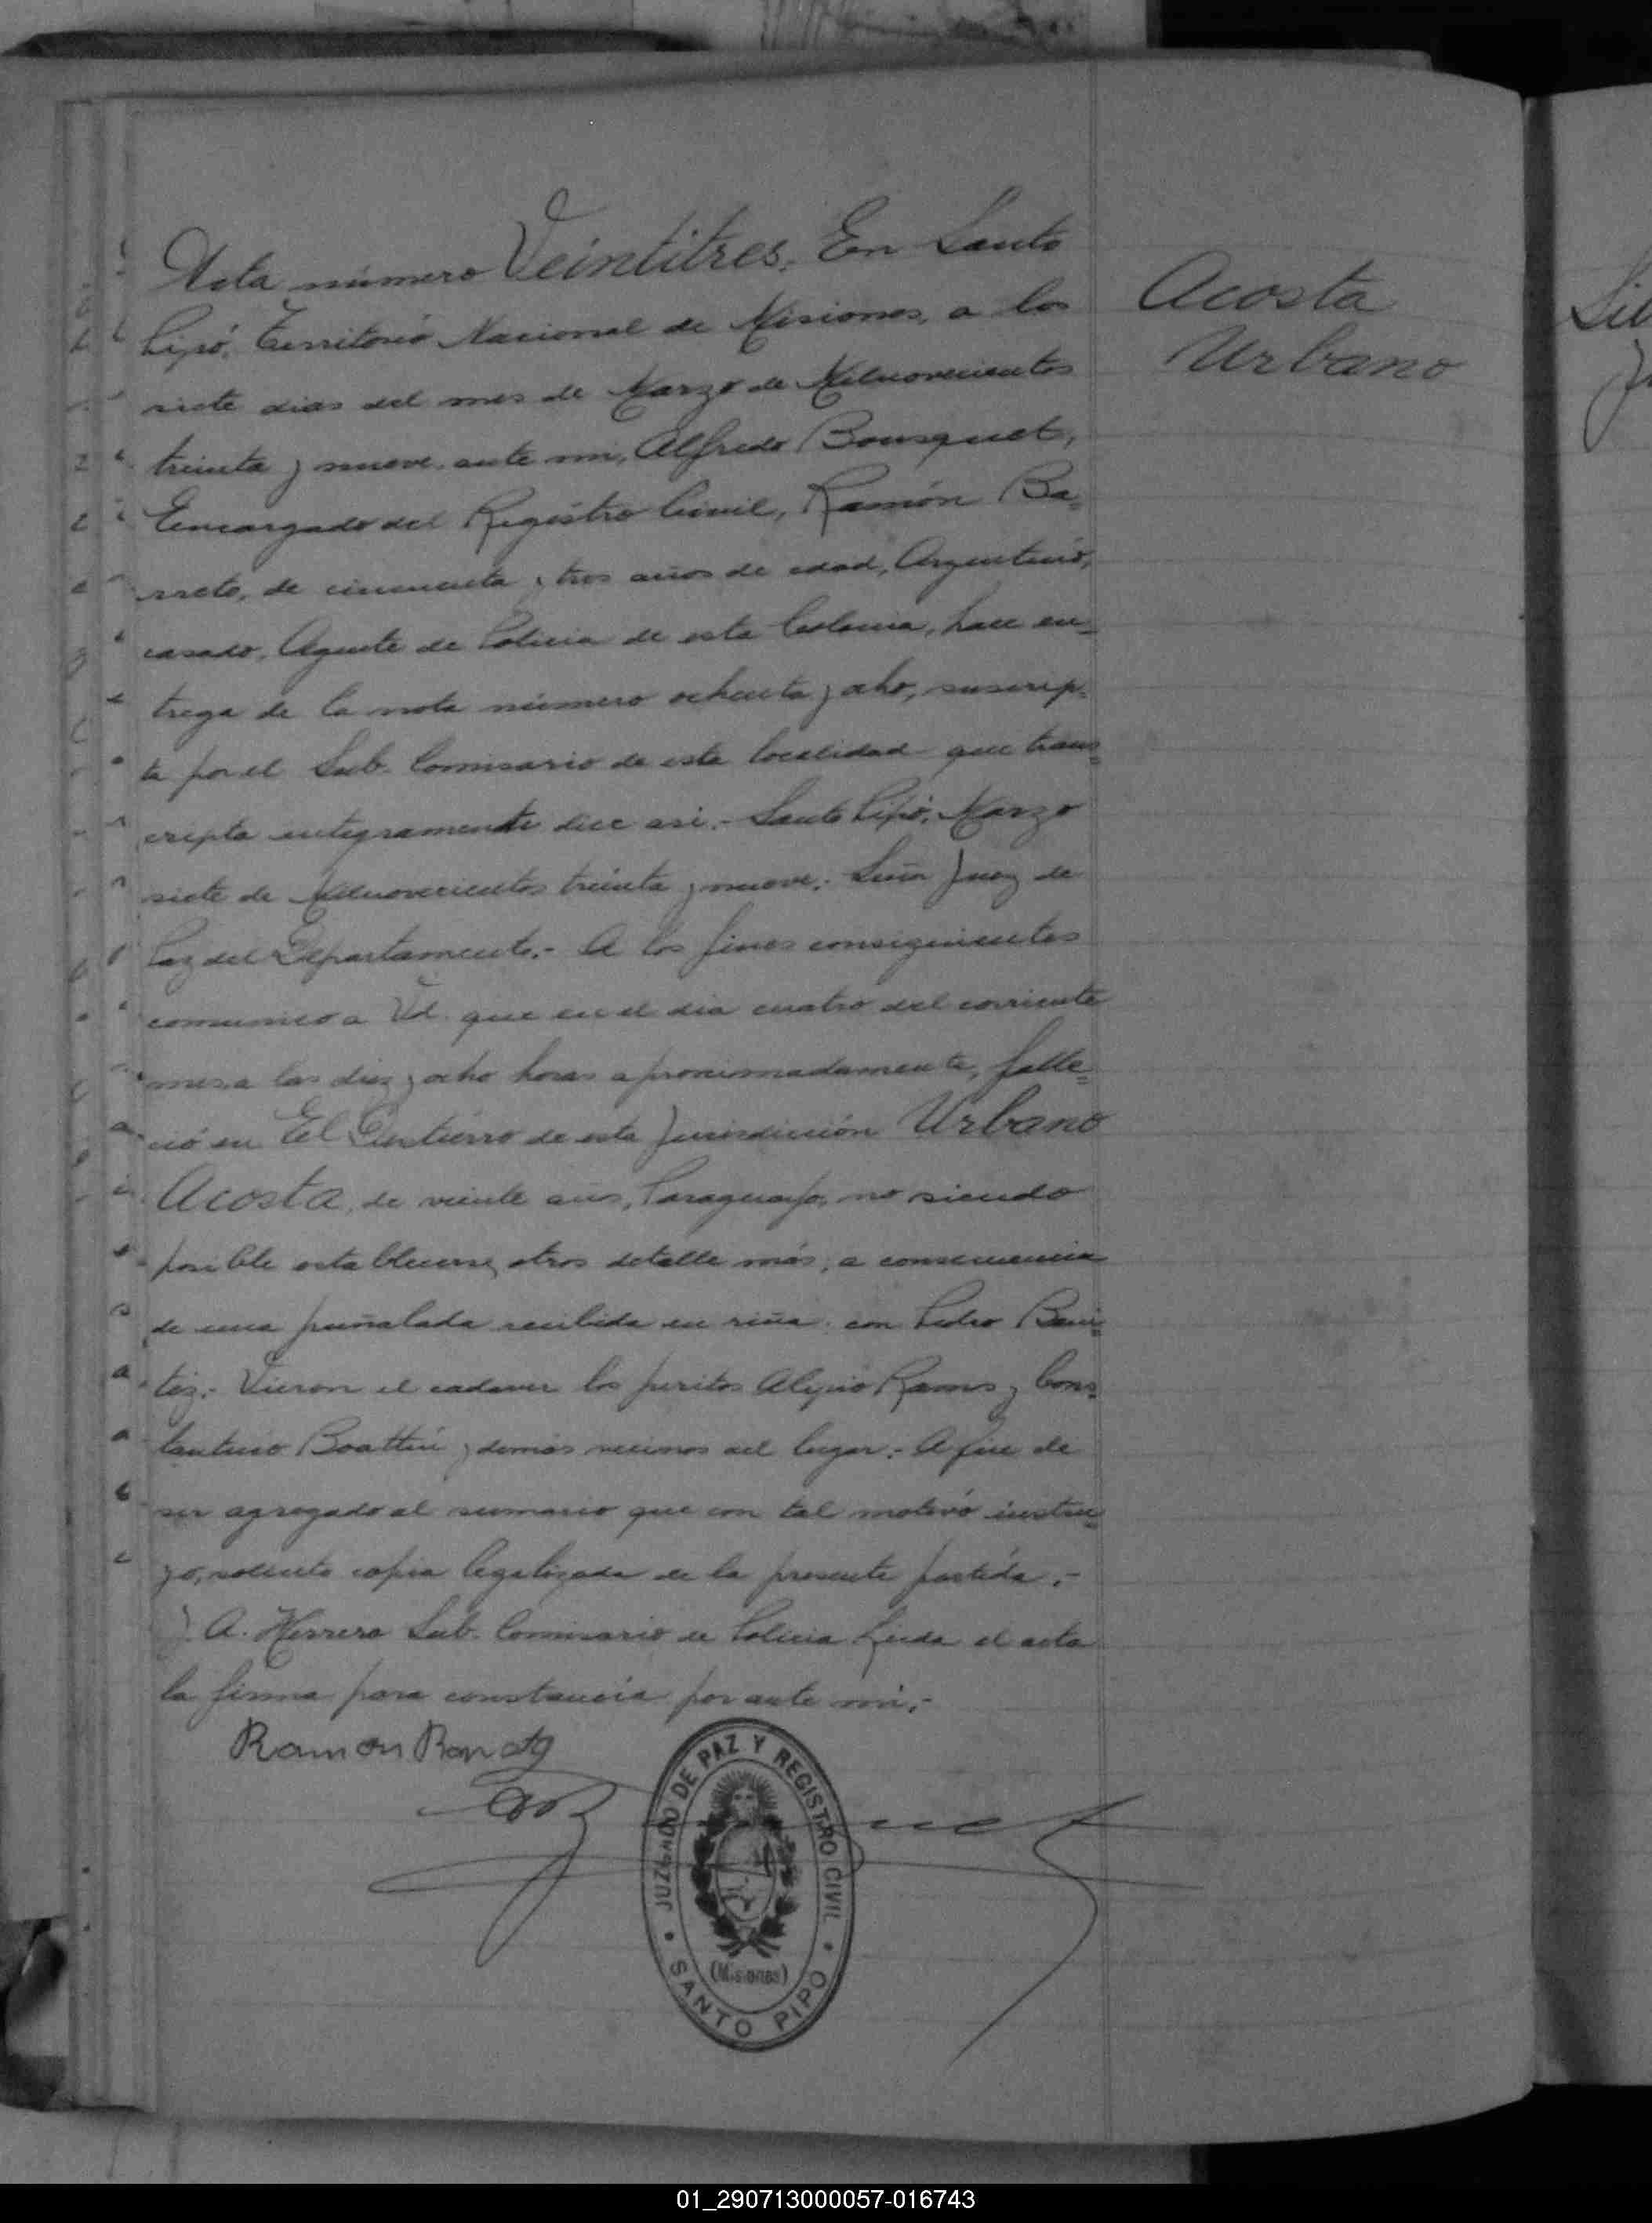 Acta número Veintitres. En Santo
Pipó, Territorio Nacional de Misiones, a los
siete dias del mes de Marzo de Milnovecientos
treinta y nueve, ante mi, Alfredo Bousquet,
Encargado del Registro Civil, Ramón Ba=
rreto, de cincuenta y tres años de edad, Argentino,
casado, Agente de Policia de esta Colonia, hace en=
trega de la nota número ochenta y ocho, suscrip=
ta por el Sub. Comisario de esta localidad que trans=
cripta integramente dice asi.- Santo Pipó, Marzo
siete de Milnovecientos treinta y nueve.- Señor Juez de
Paz del Departamento.- A los fines consiguientes
comunico a Vd. que en el dia cuatro del corriente
mes, a las diez y ocho horas aproximadamente, falle=
ció en El de esta Jurisdicción Urbano
Acosta, de veinte años, Paraguayo, no siendo
posible establecerse otros detalle más, a consecuencia
de una puñalada recibida en riña con Pedro Beni=
tez.- Vieron el cadaver los peritos Alipio Ramos y Cons=
tantino Boattini y demás vecinos del lugar.- A fin de
ser agregado al sumario que con tal motivo instru=
yo, solicito copia legalizada de la presente partida.-
J. A. Herrera Sub. Comisario de Policia Leida el acta
la firma para constancia por ante mi.-
Acosta
Urbano
Ramon Barreto
JUZGADO DE PAZ Y REGISTRO CIVIL
(Misiones)
SANTO PIPO
01_290713000057-016743